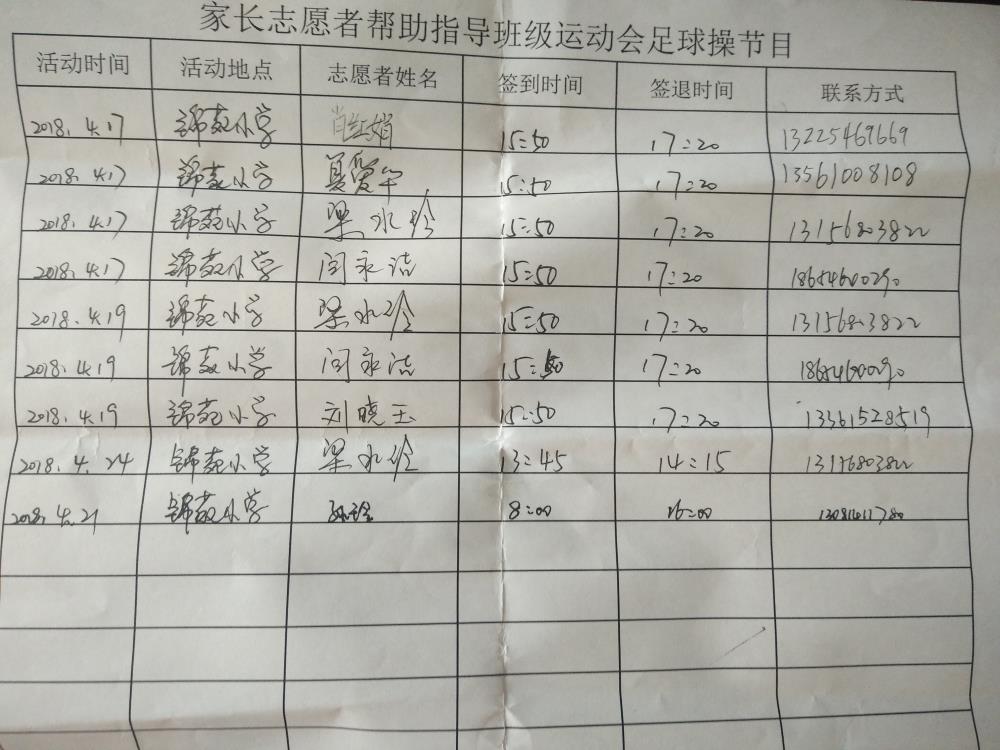 家长志愿者帮助指导班级运动会足球操节目
活动时间 活动地点 志愿者姓名 签到时间 签退时间 联系方式
2018.4.17 锦苑小学 肖红娟 15:50 17:20 13225469669
2018.4.17 锦苑小学 夏爱华 15:50 17:20 13561008108
2018.4.17 锦苑小学 梁水玲 15:50 17:20 13156803822
2018.4.17 锦苑小学 闫永洁 15:50 17:20 18654600290
2018.4.19 锦苑小学 梁水玲 15:50 17:20 13156803822
2018.4.19 锦苑小学 闫永洁 15:50 17:20 18654600290
2018.4.19 锦苑小学 刘晓玉 15:50 17:20 13361528519
2018.4.24 锦苑小学 梁水玲 13:45 14:15 13156803822
2018.4.21 锦苑小学 8:00 16:00